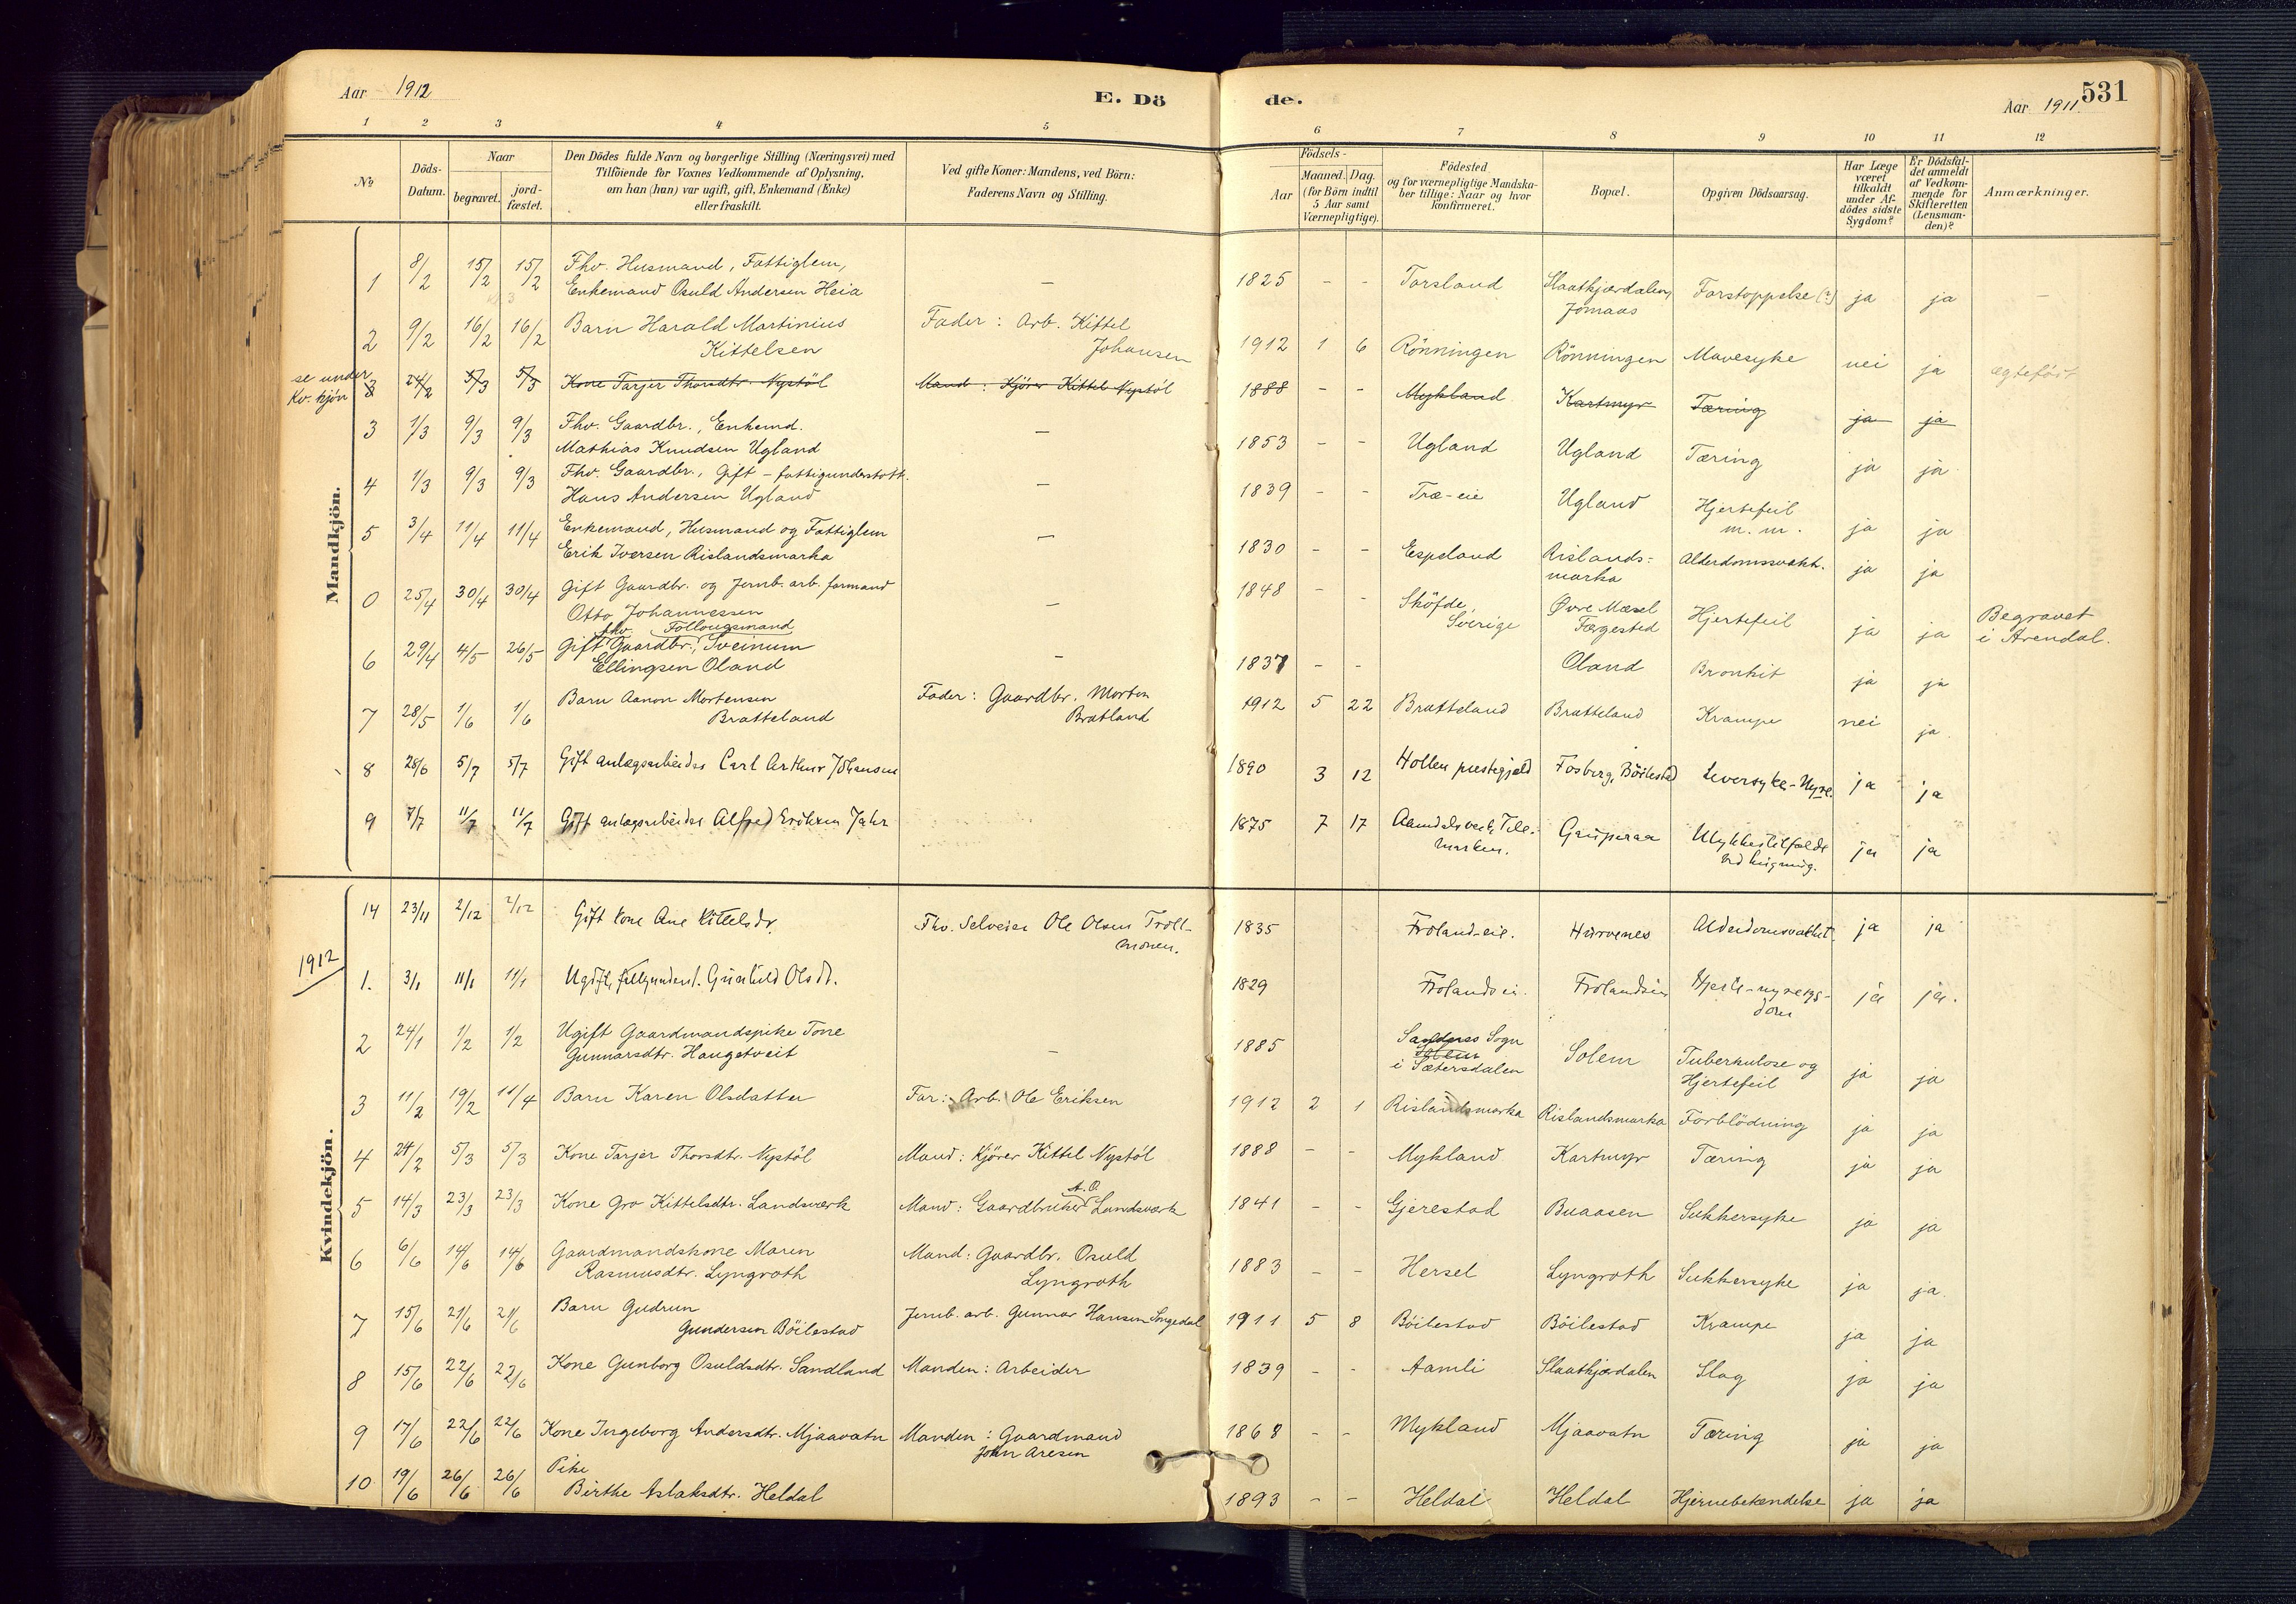 Aar 1912 E. Dö de. Aar 1911. 531
1 2 3 4 5 6 7 8 9 10 11 12
No
Döds-Datum.
Naar
begravet.
jordfæstet.
Den Dödes fulde Navn og borgerlige Stilling (Næringsvei) med
Tilföiende for Voxnes Vedkommende af Oplysning,
om han (hun) var ugift, gift, Enkemand (Enke)
eller fraskilt.
Ved gifte Koner: Mandens, ved Börn:
Faderens Navn og Stilling.
Födsels-
Aar
Maaned. Dag.
(for Börn indtil
5 Aar samt
Værnepligtige).
Födested
og for værnepligtige Mandska-
ber tillige: Naar og hvor
konfirmeret.
Bopæl.
Opgiven Dödsaarsag.
Har Læge
været
tilkaldt
under Af-
dödes sidste
Sygdom?
Er Dödsfal-
det anmeldt
af Vedkom-
mende for
Skifteretten
(Lensman-
den)?
Anmærkninger.
Mandkjön.
1 8/2 15/2 15/2 Fhv. Husmand, Fattiglem,
Enkemand Osuld Andersen Heia — 1825 - - Torsland Slaatkjærdalen, Jomaas Forstoppelse (?) ja ja —
2 9/2 16/2 16/2 Barn Harald Martinius
Kittelsen Fader: Arb. Kittel
Johansen 1912 1 6 Rönningen Rönningen Mavesyke nei ja ægteföst
se under
Kv. kjön 3 24/2 5/3 5/3 Kone Tarjer Thorsdtr. Nystöl Mand: Kjörer Kittel Nystöl 1888 - - Mykland Kartmyr Tæring ja ja
3 1/3 9/3 9/3 Fhv. Gaardbr., Enkemd.
Mathias Knudsen Ugland — 1853 - - Ugland Ugland Tæring ja ja
4 1/3 9/3 9/3 Fhv. Gaardbr., Gift - fattigunderstött.
Hans Andersen Ugland — 1839 - - Træ-eie Ugland Hjertefeil
m. m. ja ja
5 3/4 11/4 11/4 Enkemand, Husmand og Fattiglem
Erik Iversen Rislandsmarka — 1830 - - Espeland Rislands-
marka Alderdomssvakh. ja ja
0 25/4 30/4 30/4 Gift Gaardbr. og Jernb. arb. formand
Otto Johannessen — 1848 - - Sköfde,
Sverige Øvre Mæsel
Færgested Hjertefeil ja ja Begravet
i Arendal.
6 29/4 4/5 26/5 fhv. Follougsmand
Gift Gaardbr., Sveinum
Ellingsen Oland — 1837 - - Oland Bronkit ja ja
7 28/5 1/6 1/6 Barn Aanon Mortensen
Bratteland Fader: Gaardbr. Morten
Bratland 1912 5 22 Bratteland Bratteland Krampe nei ja.
8 28/6 5/7 5/7 Gift anlægsarbeider Carl Arthur Johansen 1890 3 12 Hollen prestegjeld Fosberg, Böilestad Leversyke-Nyre. ja ja
9 7/7 11/7 11/7 Gift anlægsarbeider Alfred Eriksen Jahr 1875 7 17 Aamdalsverk, Tele-
marken. Gauperaa Ulykkestilfælde
ja ja
14 23/11 2/12 2/12 Gift kone Ane Kittelsdr. Fhv. Selveier Ole Olsen Troll-
monen. 1835 Froland-eie. Hurvenes Alderdomsvakhet ja ja
Kvindekjön.
1912
1. 3/1 11/1 11/1 Ugift, Gunhild Olsdt. 1829 Frolandsei. Frolandsei Hjerte-nyresyg-
dom ja ja.
2 24/1 1/2 1/2 Ugift Gaardmandspike Tone
Gunnarsdtr. Haugetveit — 1885 Sandnes Sogn
Solem
i Sætersdalen Solem Tuberkulose og
Hjertefeil ja ja
3 11/2 19/2 11/4 Barn Karen Olsdatter Far: Arb. Ole Eriksen 1912 2 1 Rislandsmarka Rislandsmarka Forblödning ja ja
4 24/2 5/3 5/3 Kone Tarjer Thorsdtr. Nystöl Mand: Kjörer Kittel Nystöl 1888 - - Mykland Kartmyr Tæring ja ja
5 14/3 23/3 23/3 Kone Gro Kittelsdtr. Landsverk Mand: Gaardbruker A.O. Landsverk 1841 - - Gjerestad Buaasen Sukkersyke ja ja
6 6/6 14/6 14/6 Gaardmandskone Maren
Rasmusdtr. Lyngroth Mand: Gaardbr. Osuld
Lyngroth 1883 - - Hersel Lyngroth Sukkersyke ja ja.
7 15/6 21/6 21/6 Barn Gudrun
Gundersen Böilestad Jernb. arb. Gunnar Hansen Songedal 1911 5 8 Böilestad Böilestad Krampe ja ja
8 15/6 22/6 22/6 Kone Gunborg Osuldsdtr. Sandland Manden: Arbeider 1839 - - Aamli Slaatkjærdalen Slag ja ja
9 17/6 22/6 22/6 Kone Ingeborg Andersdtr. Mjaavatn Manden: Gaardmand
John Aresen 1868 - - Mykland Mjaavatn Tæring ja ja
10 19/6 26/6 26/6 Pike
Birthe Aslaksdtr. Heldal 1893 - - Heldal Heldal Hjernebetændelse ja ja